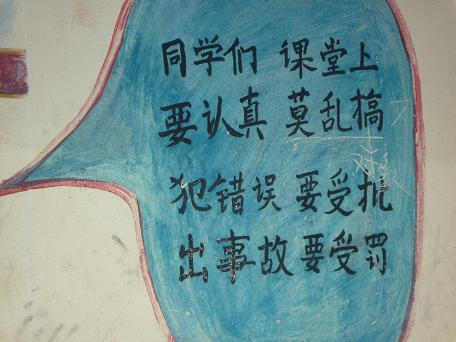 同学们 课堂上
要认真 莫乱搞
犯错误 要受批
出事故 要受罚